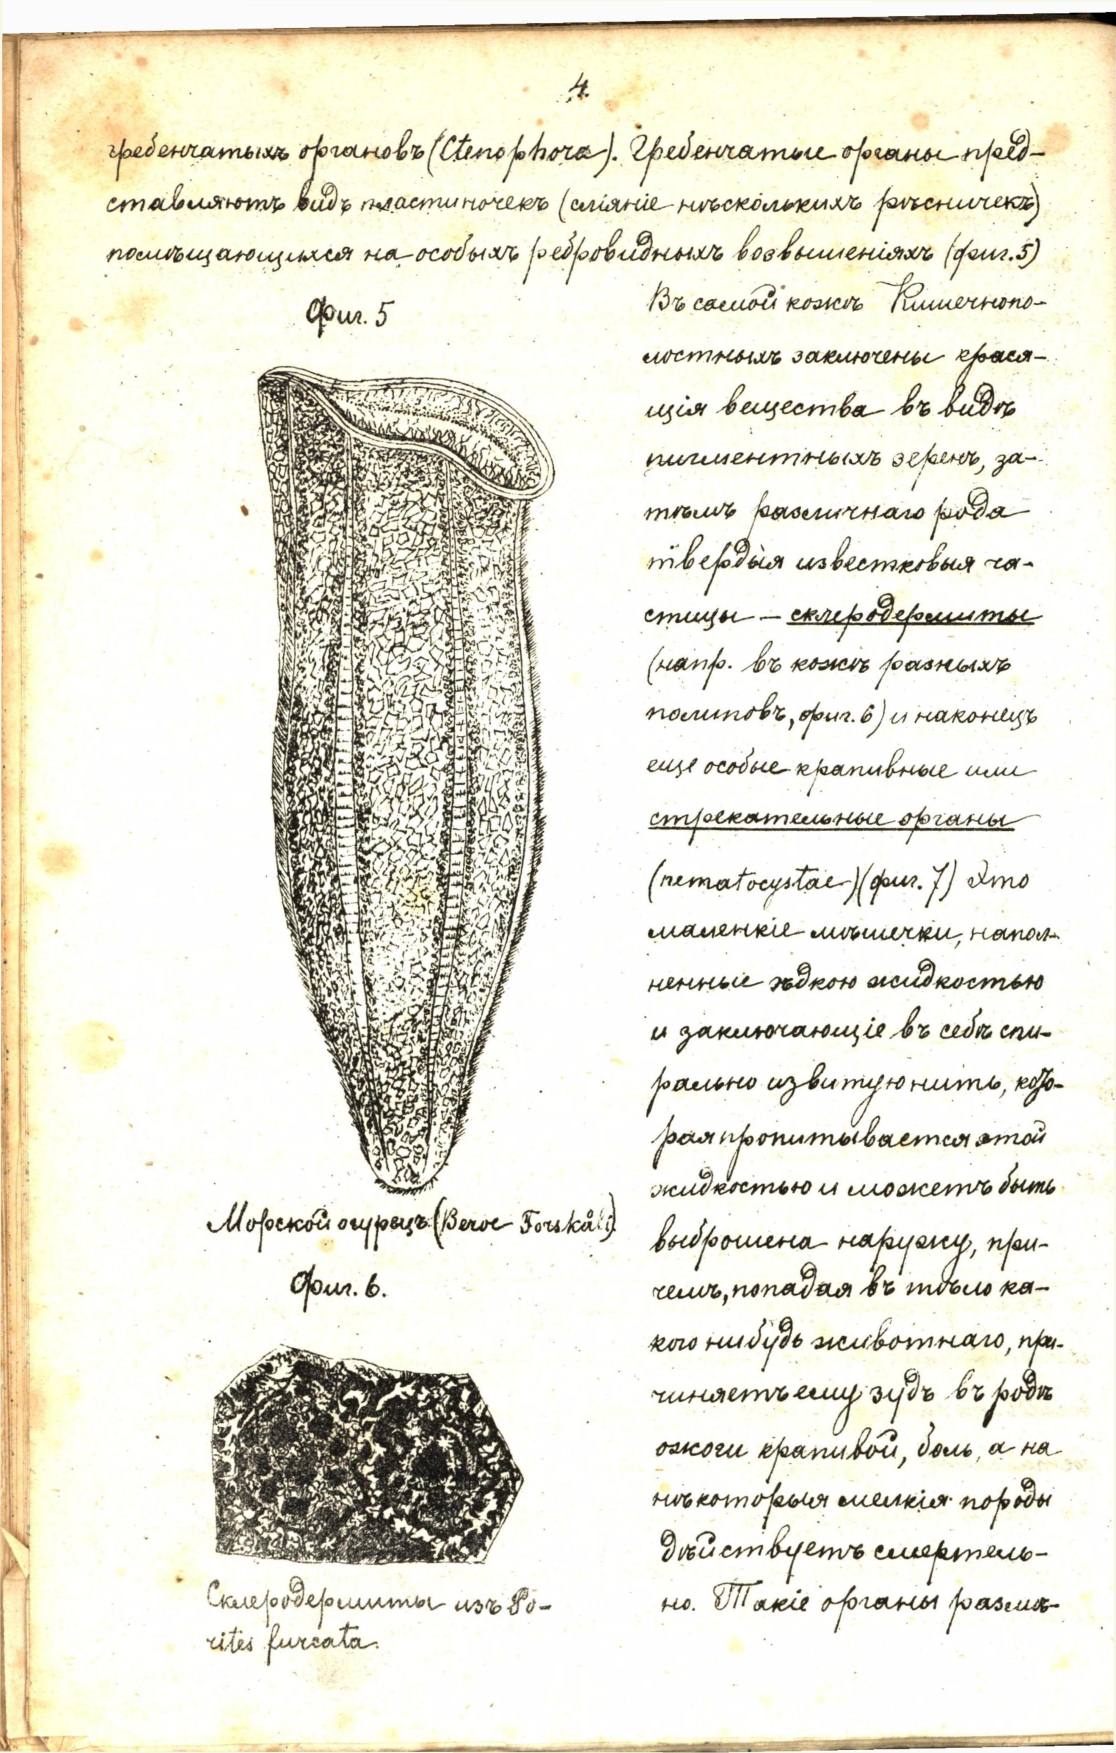 4.
гребенчатыхъ органовъ (Ctenophora). Гребенчатые органы пред-
ставляютъ видъ пластиночекъ (сліяніе нѣсколькихъ рѣсничекъ)
помѣщающихся на особыхъ ребровидныхъ возвышеніяхъ (фиг. 5)
Фиг. 5
Морской огурецъ (Beroe Forskåli)
Фиг. 6.
Склеродермиты изъ Po-
rites furcata.
Въ самой кожѣ Кишечнопо-
лостныхъ заключены крася-
щія вещества въ видѣ
пигментныхъ зеренъ, за-
тѣмъ различнаго рода
твердыя известковыя ча-
стицы – склеродермиты
(напр. въ кожѣ разныхъ
полиповъ, фиг. 6) и наконецъ
еще особые крапивные или
стрекательные органы
(nematocystae) (фиг. 7) Это
маленкіе мѣшечки, напол-
ненные ѣдкою жидкостью
и заключающіе въ себѣ спи-
рально извитую нить, кото-
рая пропитывается этой
жидкостью и можетъ быть
выброшена наружу, при-
чемъ, попадая въ тѣло ка-
кого нибудь животнаго, при-
чиняетъ ему зудъ въ родѣ
ожоги крапивой, боль, а на
нѣкоторыя мелкія породы
дѣйствуетъ смертель-
но. Такіе органы размѣ-